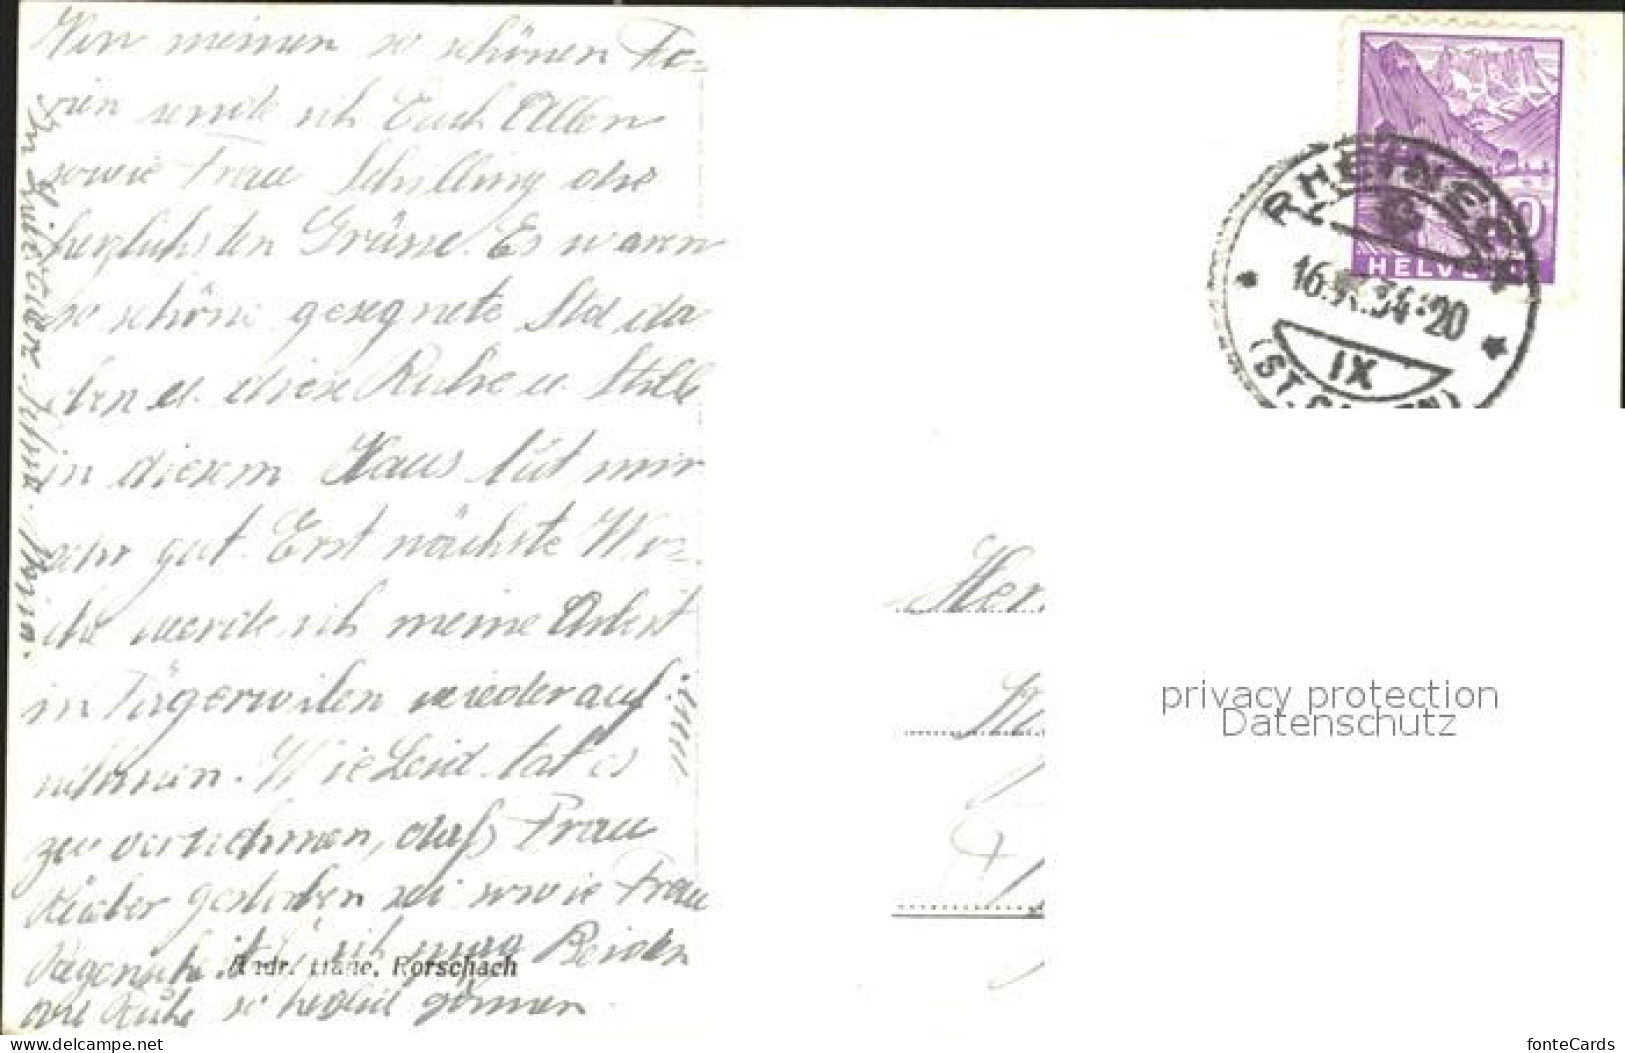 Von meinen so schönen Fe-
rien sende ich Euch Allen
sowie Frau Schilling die
herzlichsten Grüsse. Es waren
so schöne gesegnete Std da
oben u. diese Ruhe u. Stille
in diesem Haus tut mir
sehr gut. Erst nächste Wo-
che werde ich meine Arbeit
in Tägerwilen wieder auf
nehmen. Wie Leid tat es
zu vernehmen, daß Frau
gestorben sei sowie Frau
ich mag Beiden
die Ruhe so herzlich gönnen
In Liebe
Andr. Hane, Rorschach
RHEINECK
16.IX.34-20
IX
(ST. GALLEN)
10
HELVETIA
Her
privacy protection
Datenschutz
www.delcampe.net
fonteCards